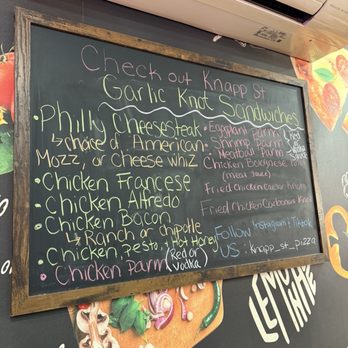 Check out Knapp St
Garlic Knot Sandwiches
• Philly Cheesesteak
↳ choice of American
Mozz, or cheese whiz
• Chicken Francese
• Chicken Alfredo
• Chicken Bacon
↳ Ranch or chipotle
• Chicken, pesto, + Hot Honey
• Chicken parm (Red or
Vodka)
• Eggplant Parm
• Shrimp Parm
• Meatball Parm
Chicken Bolognese Parm
(meat sauce)
Fried Chicken Caesar
Fried Chicken Carbonara
Follow Instagram + Tiktok
US: Knapp_st_pizza